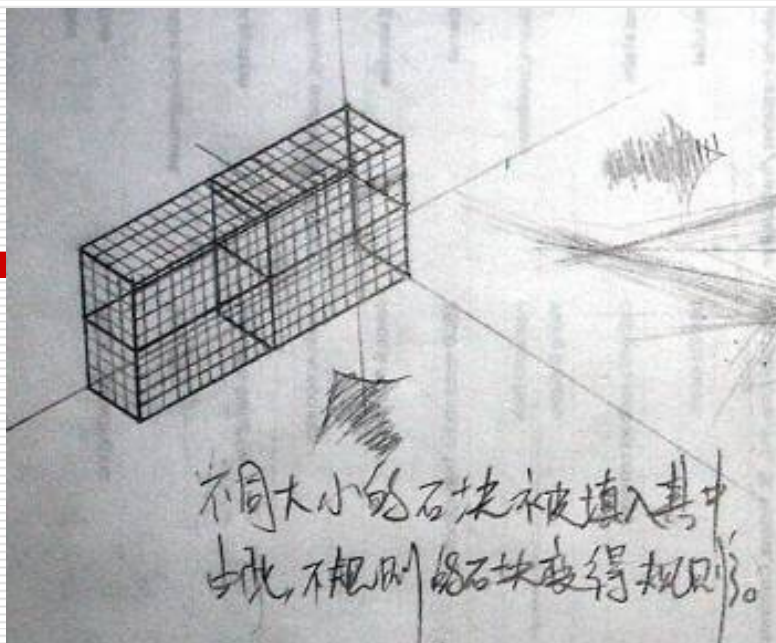 不同大小的石块被填入其中
由此,不规则的石块变得规则。